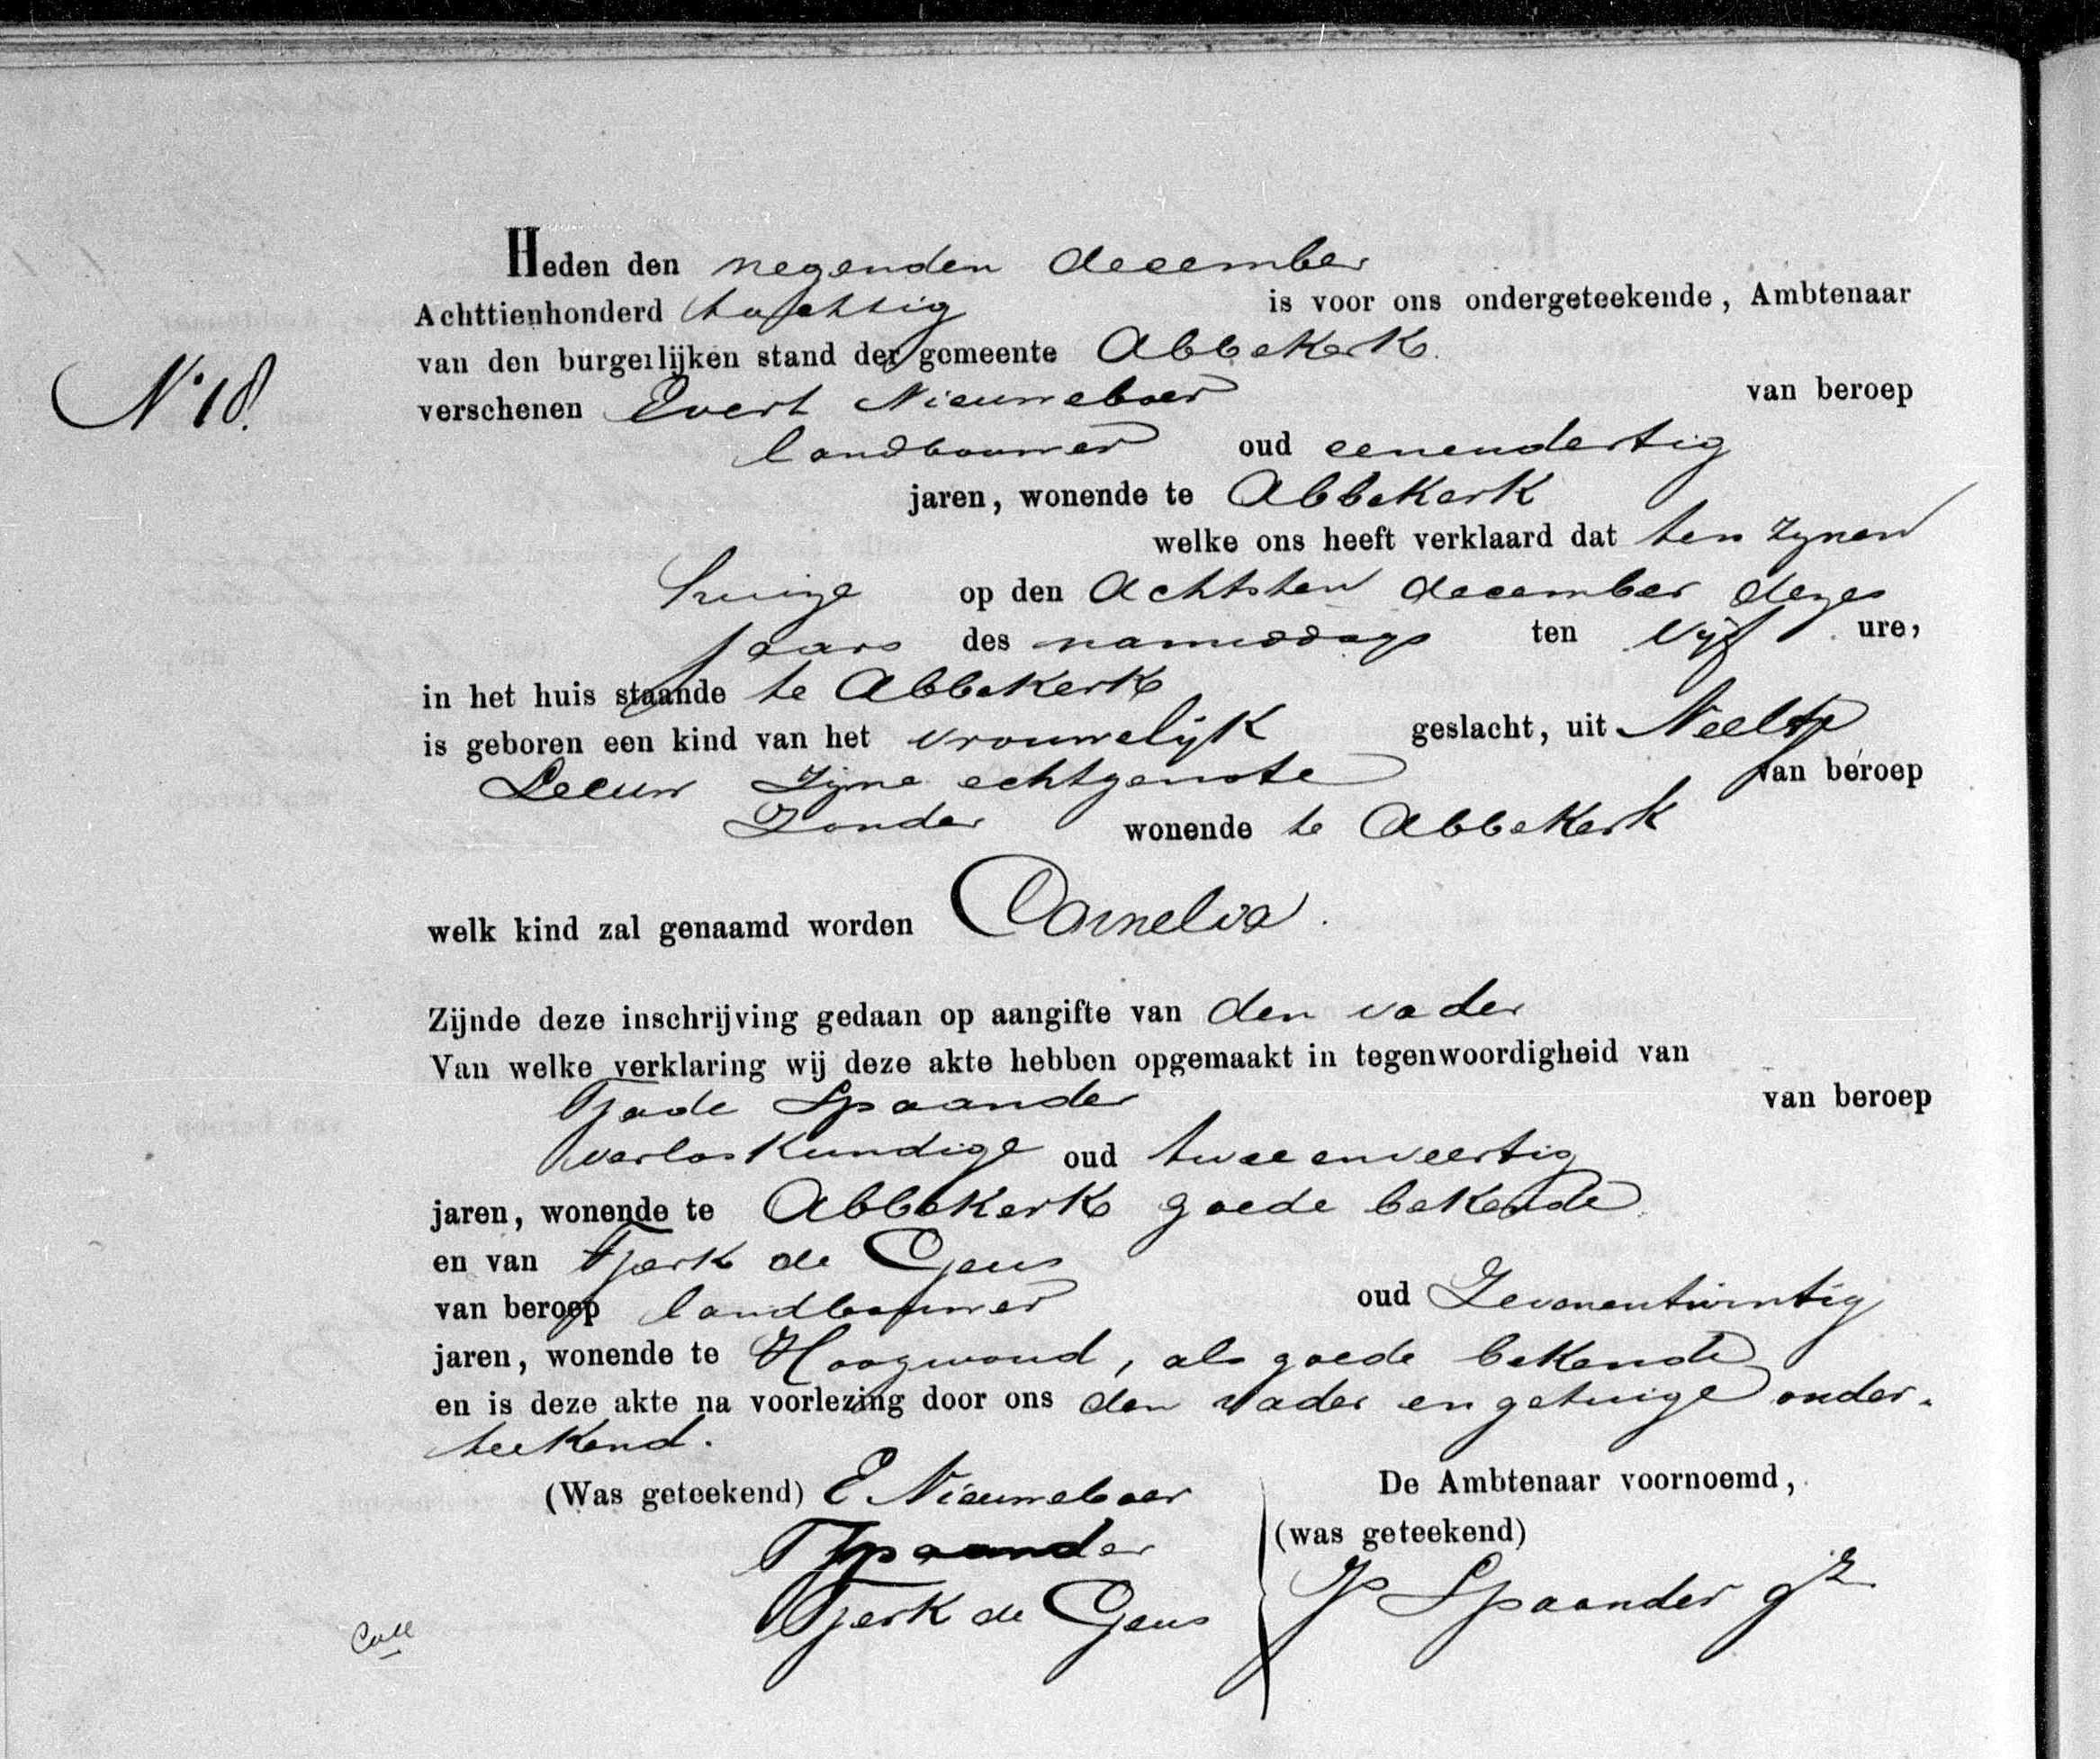 Heden den negenden december
Achttienhonderd tachtig is voor ons ondergeteekende, Ambtenaar
van den burgerlijken stand der gemeente Abbekerk.
No 18.
verschenen Evert Nieuweboer van beroep
landbouwer oud eenendertig
jaren, wonende te Abbekerk
welke ons heeft verklaard dat ten zynen
huize op den Achtsten december dezes
jaars des namiddags ten vyf ure,
in het huis staande te Abbekerk
is geboren een kind van het vrouwelijk geslacht, uit Neeltje
Leeuw zijne echtgenote van beroep
Zonder wonende te Abbekerk
welk kind zal genaamd worden Cornelia.
Zijnde deze inschrijving gedaan op aangifte van den vader
Van welke verklaring wij deze akte hebben opgemaakt in tegenwoordigheid van
Tjade Spaander van beroep
verloskundige oud tweeenveertig
jaren, wonende te Abbekerk goede bekende
en van Tjerk de Geus
van beroep landbouwer oud Zevenentwintig
jaren, wonende te Hoogwoud, als goede bekende
en is deze akte na voorlezing door ons den vader en getuige onder-
teekend.
(Was geteekend) E Nieuweboer De Ambtenaar voornoemd,
T Spaander (was geteekend)
Tjerk de Geus P Spaander gz
Coll